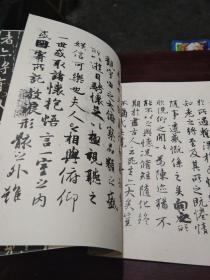 觀宇宙之大俯察品類之盛
所以遊目騁懷足以極視聽之
娛信可樂也夫人之相與俯仰
一世或取諸懷抱悟言一室之內
或因寄所託放浪形骸之外雖
於所遇
知老之將至及其所之既惓情
隨事遷感慨係之矣向之
欣俛仰之間以為陳迹猶不
能不以之興懷況脩短隨化終
期於盡古人云死生亦大矣豈